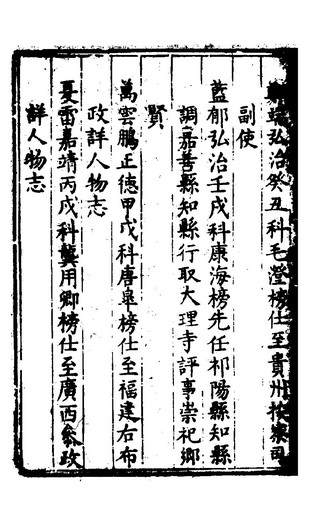 弘治癸丑科毛澄榜仕至貴州按察司
副使
藍郁弘治壬戌科康海榜先任祁陽縣知縣
調嘉善縣知縣行取大理寺評事崇祀鄉
賢
萬雲鵬正德甲戌科唐皐榜仕至福建右布
政詳人物志
夏雷嘉靖丙戌科龔用卿榜仕至廣西叅政
詳人物志